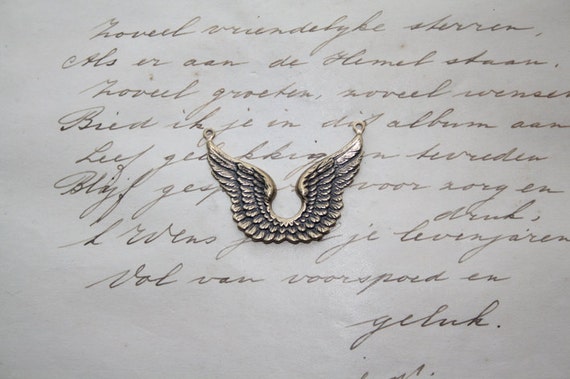 Zooveel vriendelyke sterren,
Als er aan de Hemel staan.
Zooveel groeten, zooveel wensen
Bied ik je in dit album aan
Leef gelukkig en tevreden
Blijf gespaard voor zorg en
druk,
'k Wens je je levenjaren
Vol van voorspoed en
geluk.